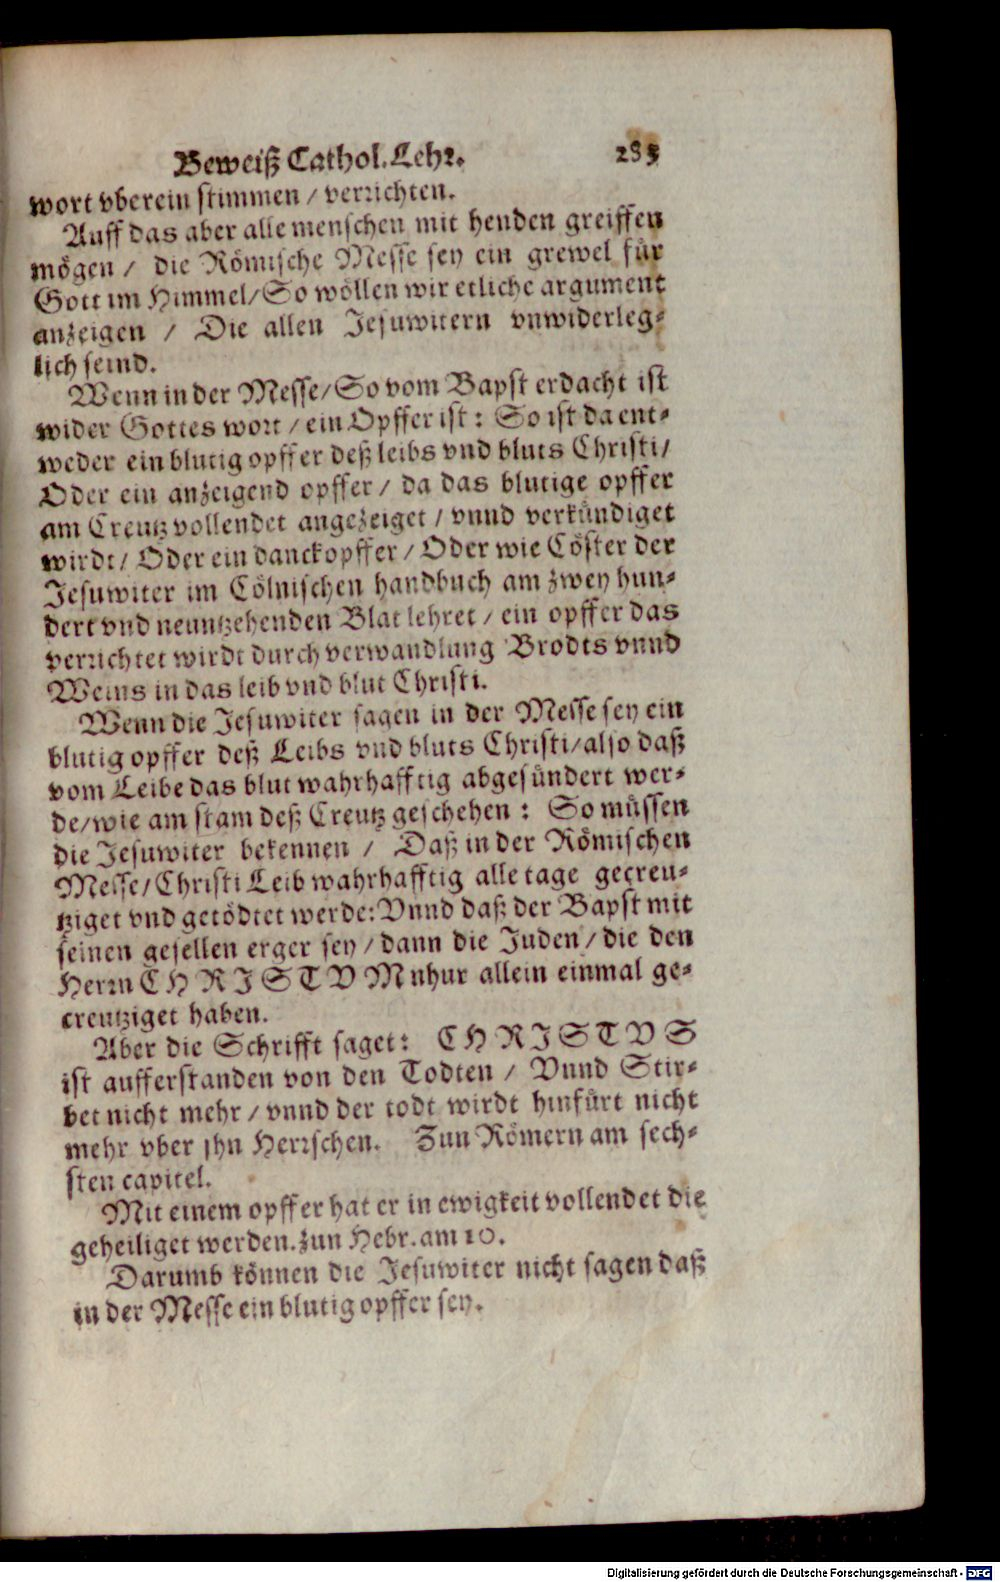 Beweiß Cathol. Lehr. 285
wort vberein stimmen / verrichten.
Auff das aber alle menschen mit henden greiffen
mögen / die Römische Messe sey ein grewel für
Gott im Himmel / So wöllen wir etliche argument
anzeigen / Die allen Jesuwitern vnwiderleg-
lich seind.
Wenn in der Messe / So vom Bapst erdacht ist
wider Gottes wort / ein Opffer ist: So ist da ent-
weder ein blutig opffer deß leibs vnd bluts Christi /
Oder ein anzeigend opffer / da das blutige opffer
am Creutz vollendet angezeiget / vnnd verkündiget
wirdt / Oder ein danckopffer / Oder wie Cöster der
Jesuwiter im Cölnischen handbuch am zwey hun-
dert vnd neuntzehenden Blat lehret / ein opffer das
verrichtet wirdt durch verwandlung Brodts vnnd
Weins in das leib vnd blut Christi.
Wenn die Jesuwiter sagen in der Messe sey ein
blutig opffer deß Leibs vnd bluts Christi / also daß
vom Leibe das blut wahrhafftig abgesündert wer-
de / wie am stam deß Creutz geschehen: So müssen
die Jesuwiter bekennen / Daß in der Römischen
Messe / Christi Leib wahrhafftig alle tage gecreu-
tziget vnd getödtet werde: Vnnd daß der Bapst mit
seinen gesellen erger sey / dann die Juden / die den
Herrn CHRISTVM nhur allein einmal ge-
creutziget haben.
Aber die Schrifft saget: CHRISTVS
ist aufferstanden von den Todten / Vnnd Stir-
bet nicht mehr / vnnd der todt wirdt hinfürt nicht
mehr vber jhn Herrschen. Zun Römern am sech-
sten capitel.
Mit einem opffer hat er in ewigkeit vollendet die
geheiliget werden. zun Hebr. am 10.
Darumb können die Jesuwiter nicht sagen daß
in der Messe ein blutig opffer sey.
Digitalisierung gefördert durch die Deutsche Forschungsgemeinschaft - DFG